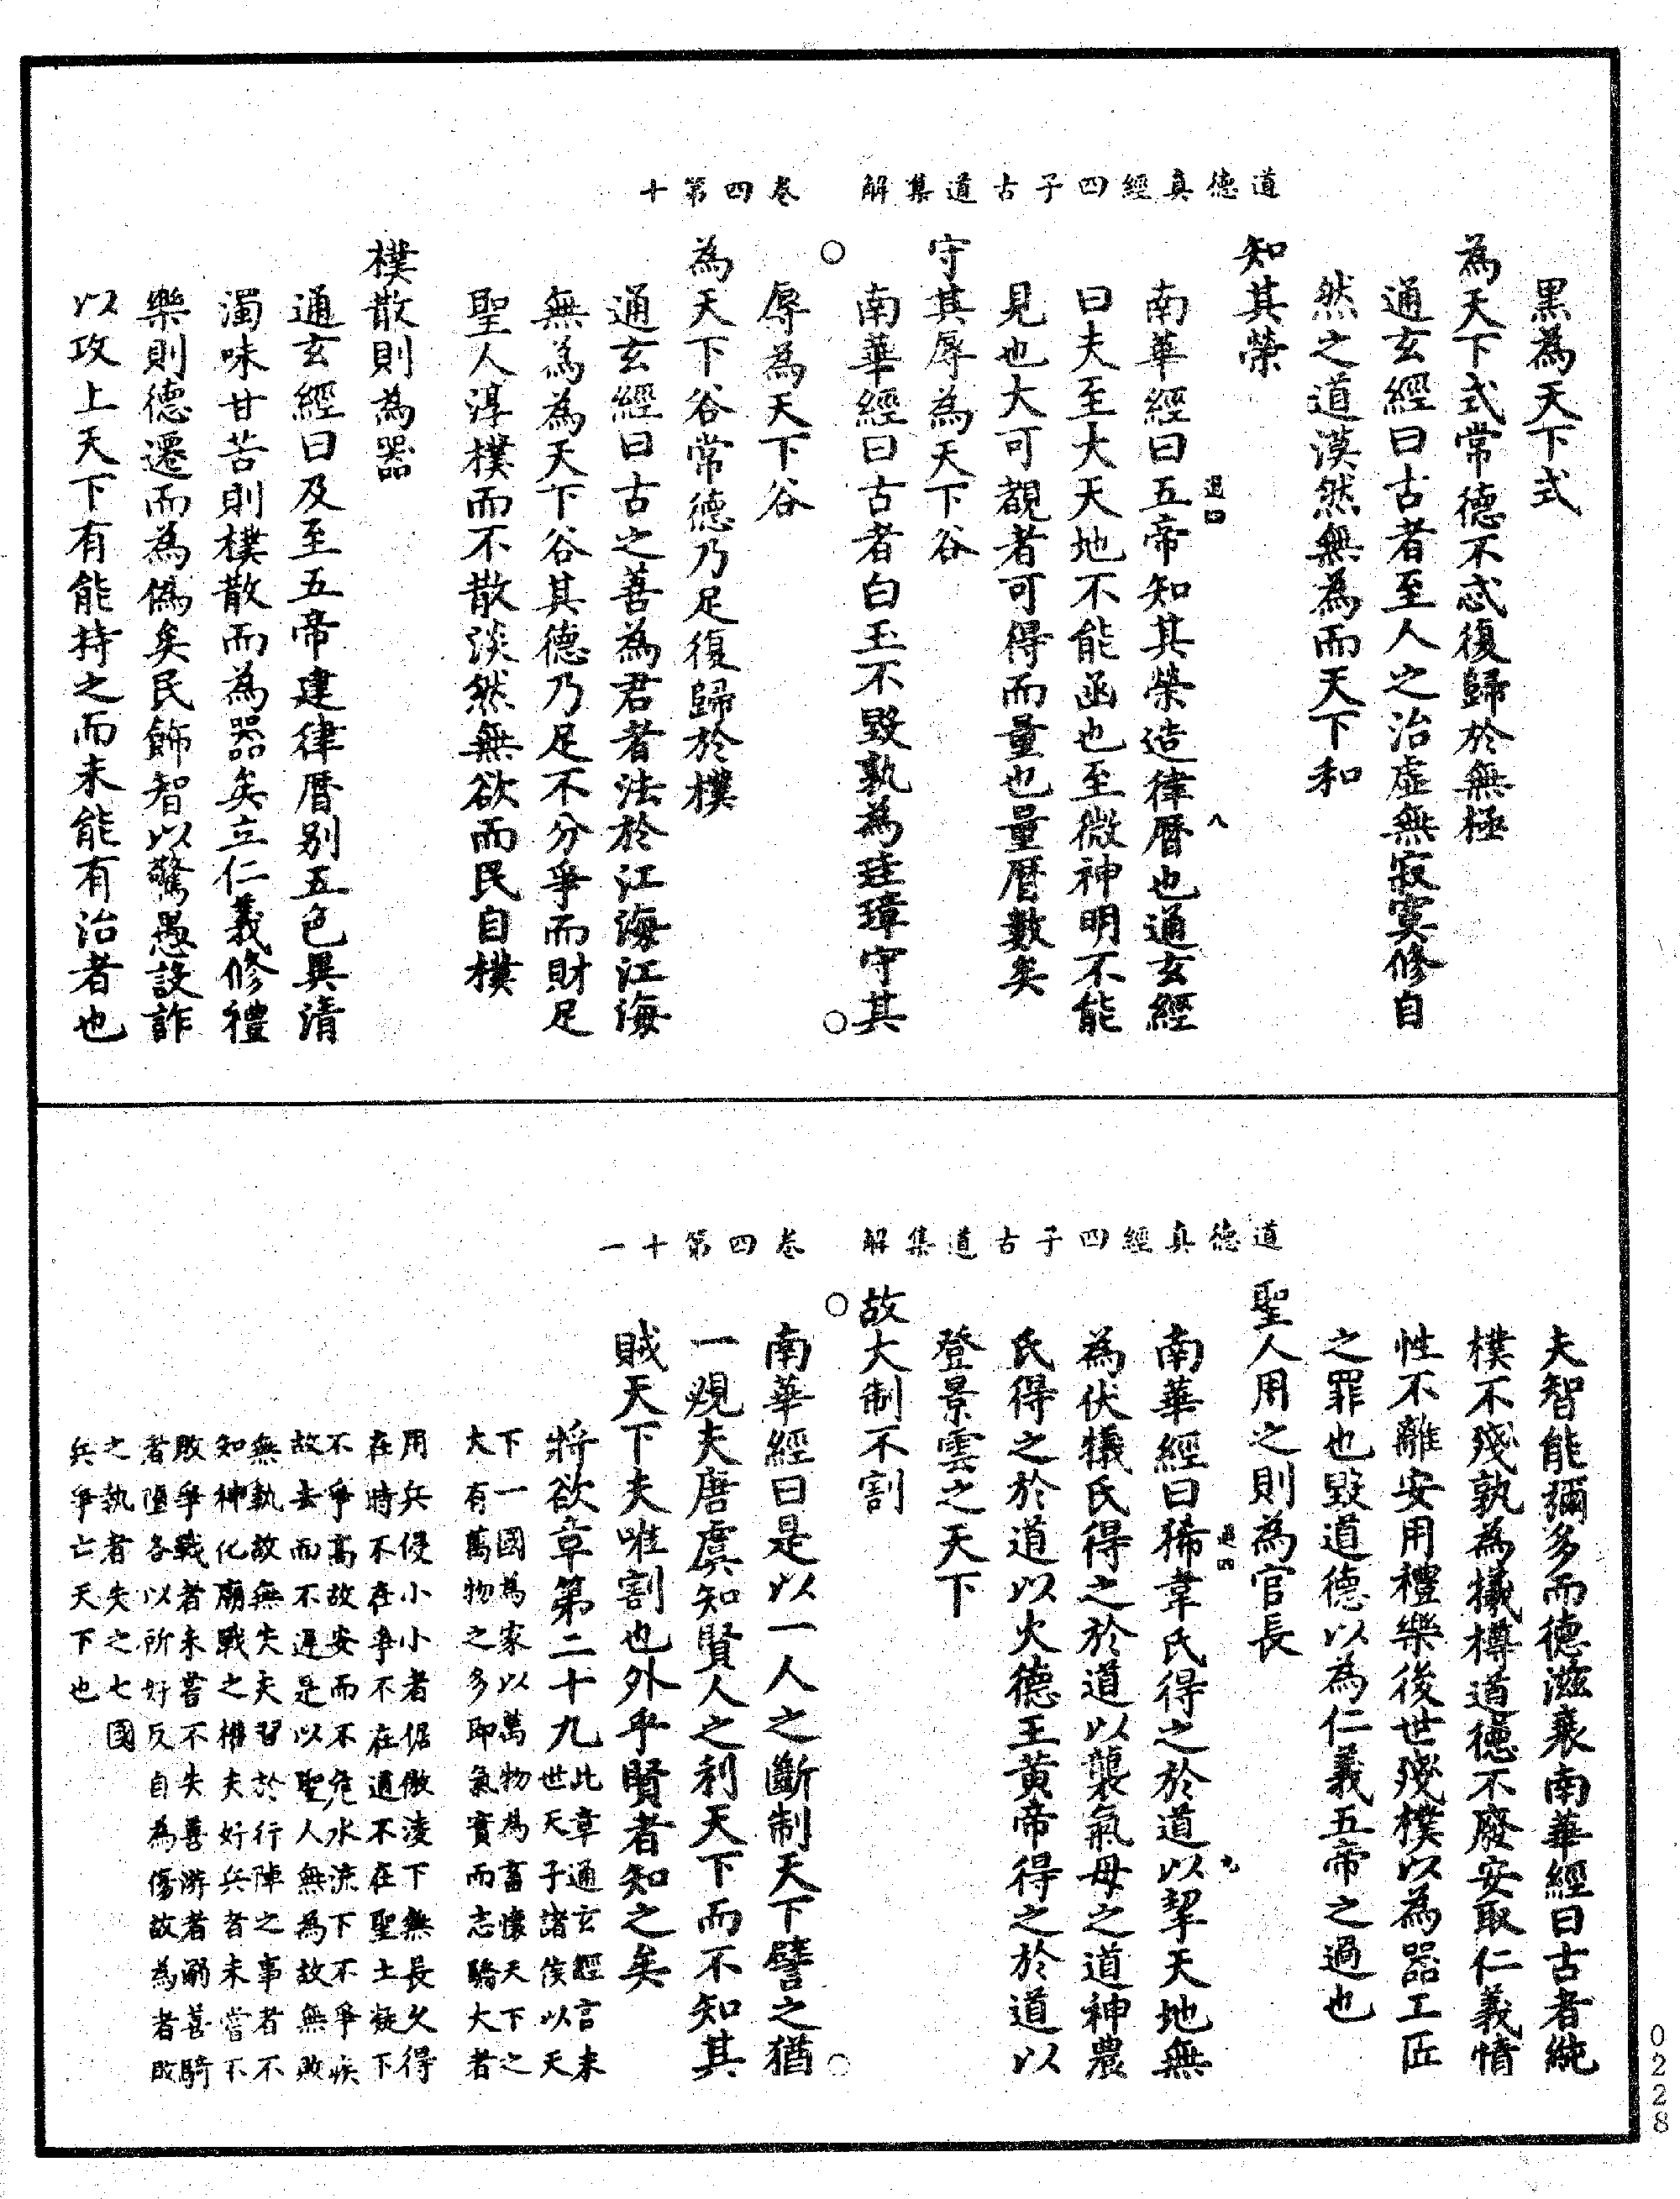 道德真經四子古道集解　卷四第十
黑為天下式
為天下式常德不忒復歸於無極
通玄經曰古者至人之治虛無寂寞修自
然之道漠然無為而天下和
知其榮
過四
八
南華經曰五帝知其榮造律曆也通玄經
曰夫至大天地不能函也至微神明不能
見也大可覩者可得而量也量曆數矣
守其辱為天下谷
南華經曰古者白玉不毀孰為珪璋守其
辱為天下谷
為天下谷常德乃足復歸於樸
通玄經曰古之善為君者法於江海江海
無為為天下谷其德乃足不分爭而財足
聖人淳樸而不散淡然無欲而民自樸
樸散則為器
通玄經曰及至五帝建律曆別五色異清
濁味甘苦則樸散而為器矣立仁義修禮
樂則德遷而為偽矣民飾智以驚愚設詐
以攻上天下有能持之而未能有治者也
道德真經四子古道集解　卷四第十一
夫智能彌多而德滋衰南華經曰古者純
樸不殘孰為犧樽道德不廢安取仁義情
性不離安用禮樂後世殘樸以為器工匠
之罪也毀道德以為仁義五帝之過也
聖人用之則為官長
過四
九
南華經曰狶韋氏得之於道以挈天地無
為伏犧氏得之於道以襲氣母之道神農
氏得之於道以火德王黃帝得之於道以
登景雲之天下
故大制不割
南華經曰是以一人之斷制天下譬之猶
一覕夫唐虞知賢人之利天下而不知其
賊天下夫唯割也外乎賢者知之矣
將欲章第二十九
此章通玄經言末
世天子諸侯以天
下一國為家以萬物為畜懷天下之
大有萬物之多即氣實而志驕大者
用兵侵小小者倨傲凌下無長久得
在時不在爭不在道不在聖土疑下
不爭高故安而不危水流下不爭疾
故去而不遲是以聖人無為故無敗
無執故無失夫習於行陣之事者不
知神化廟戰之權夫好兵者未嘗不
敗爭戰者未嘗不失善游者溺善騎
者墮各以所好反自為傷故為者敗
之執者失之七國
兵爭亡天下也
0228